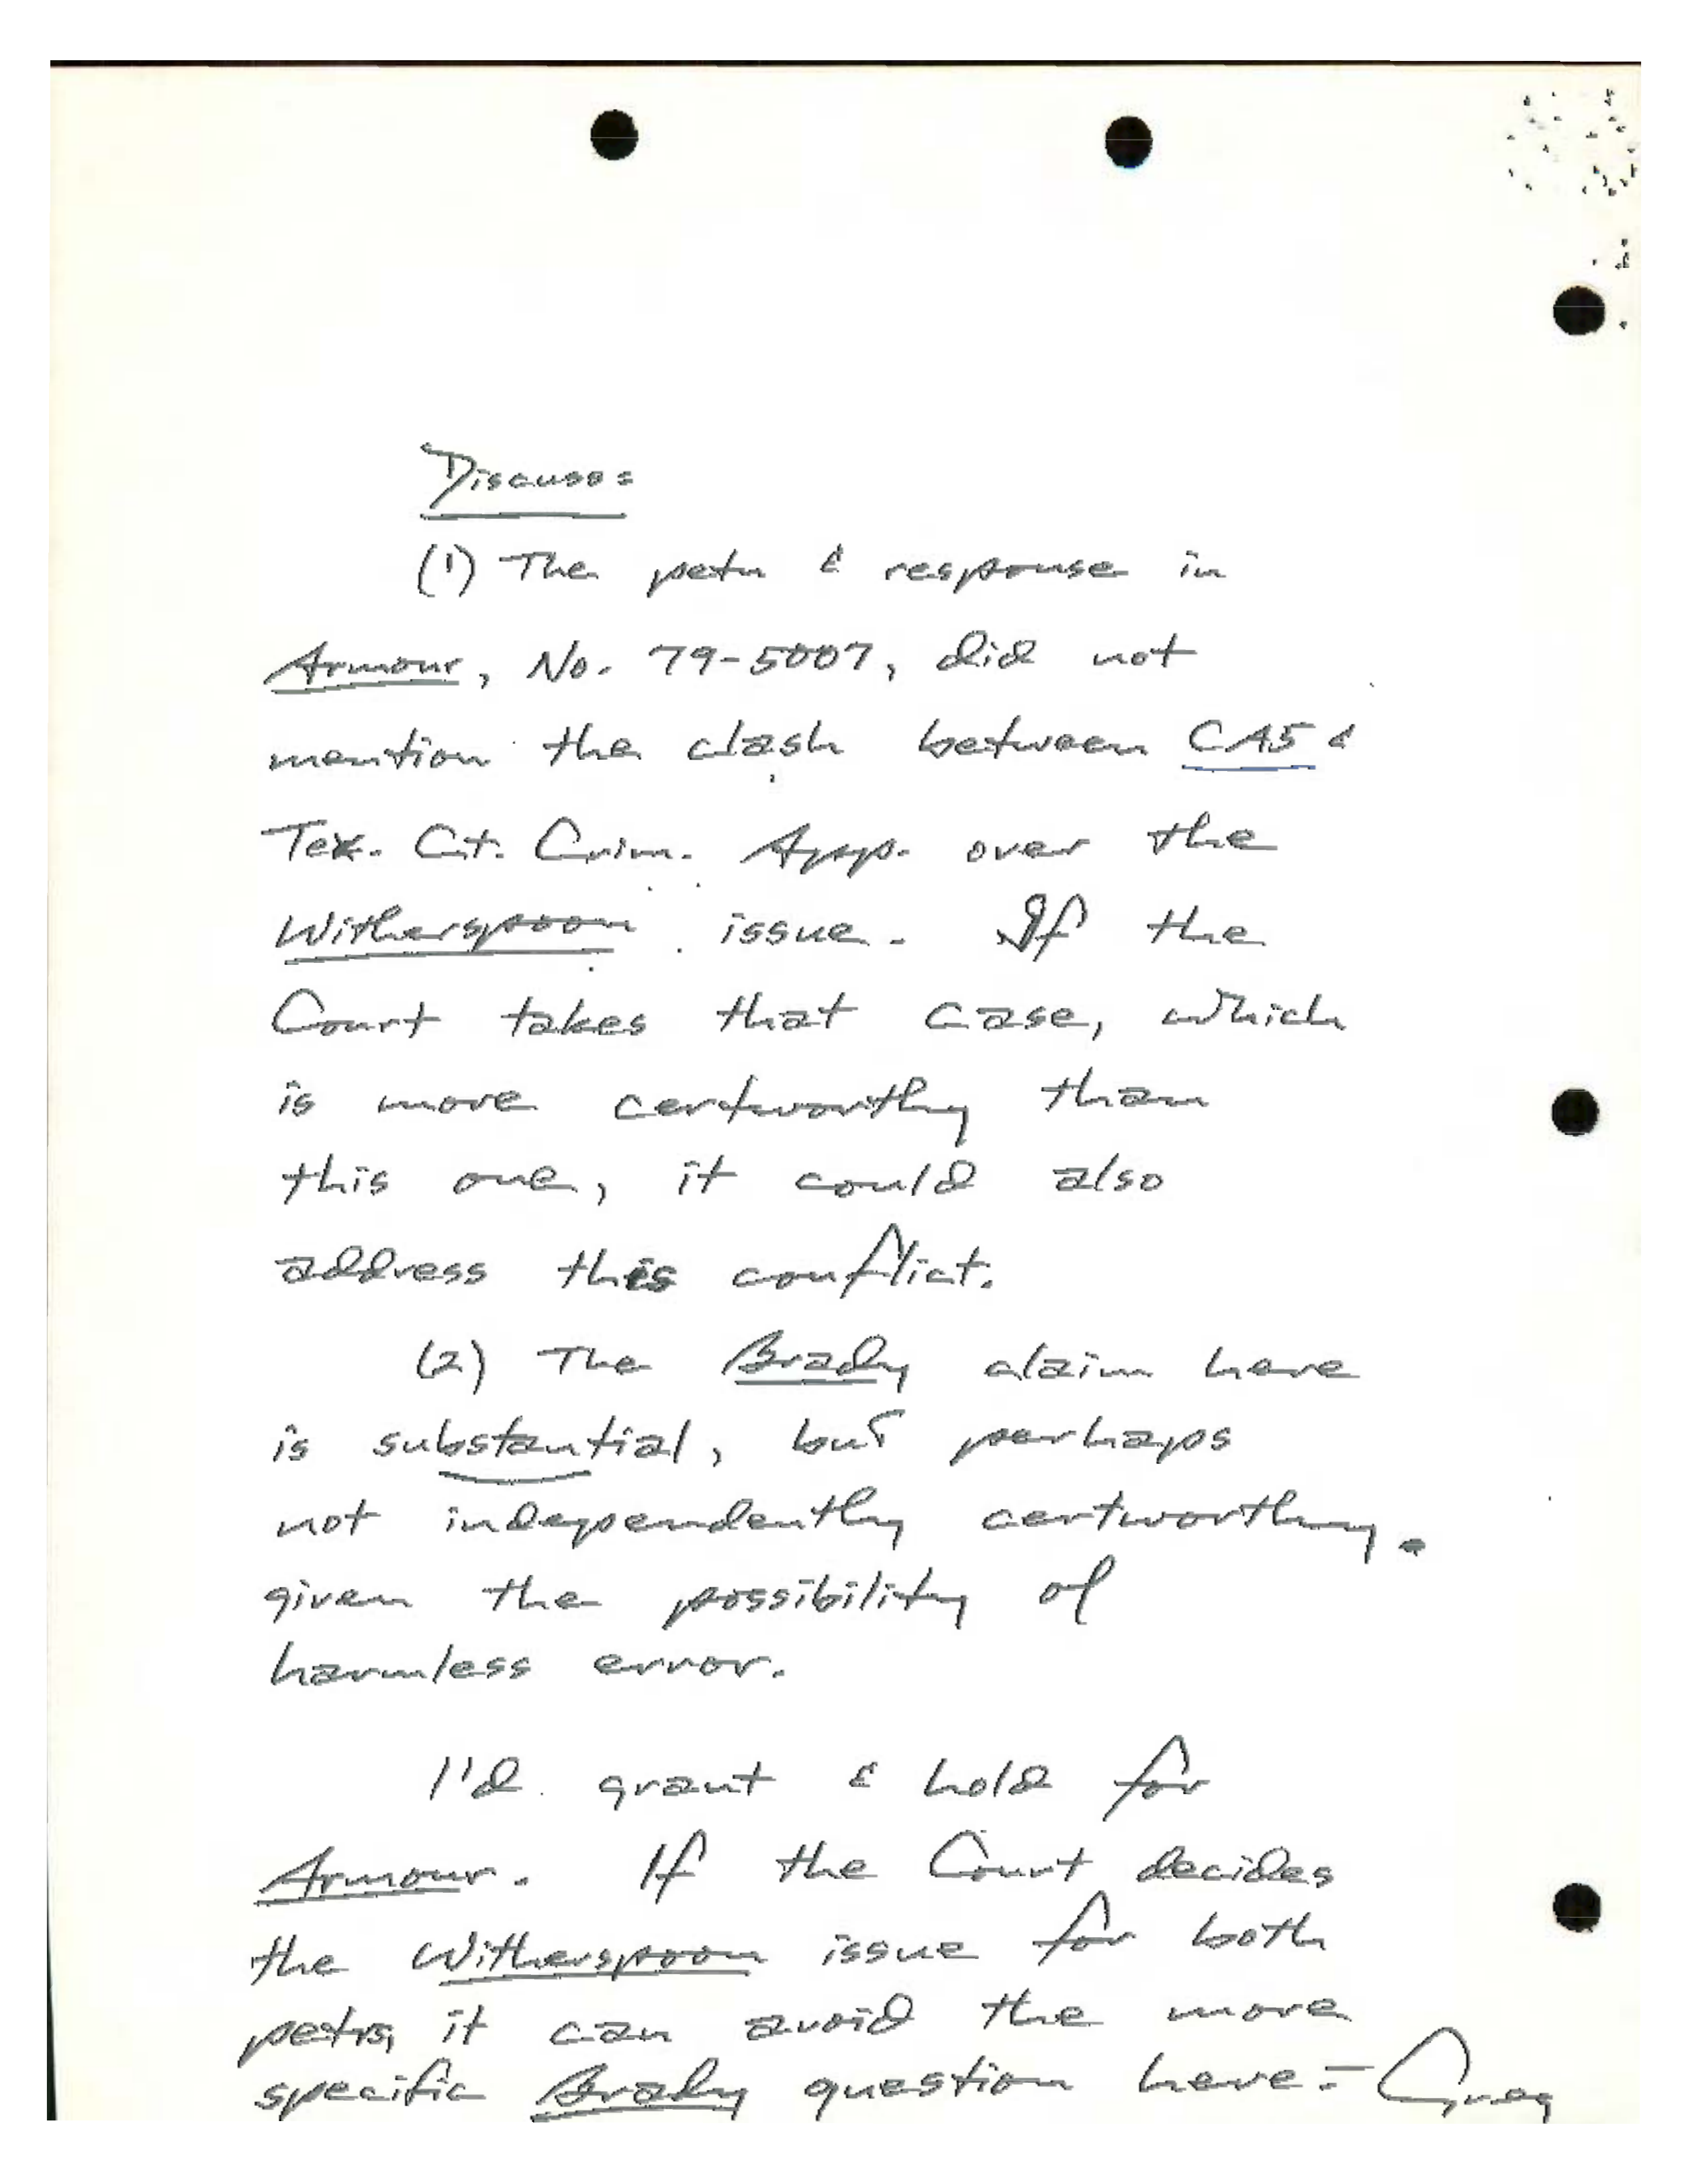 Discuss:
(1) The petn & response in
Armour, No. 79-5007, did not
mention the clash between CA5 &
Tex. Ct. Crim. App. over the
Witherspoon issue. If the
Court takes that case, which
is more certworthy than
this one, it could also
address this conflict.
(2) The Brady claim here
is substantial, but perhaps
not independently certworthy.
given the possibility of
harmless error.
I'd grant & hold for
Armour. If the Court decides
the Witherspoon issue for both
petrs, it can avoid the more
specific Brady question here. - Greg